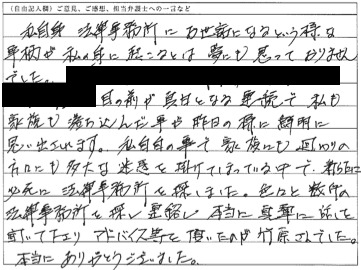 (自由記入欄) ご意見、ご感想、担当弁護士への一言など
私自身 法律事務所にお世話になるという様な
事柄が私の身に起こることは夢にも思っておりません
でした。
目の前が真白となる連続で私も
家族も落ち込んだ事や昨日の様に鮮明に
思い出されます。私自身の事で家族にも周りの
方々にも多大な迷惑を掛けてしまっている中で、
必死に法律事務所を探しました。色々と数件の
法律事務所を探し連絡し本当に真摯に応じて
頂いて アドバイス等を頂いたのが竹原さんでした。
本当にありがとうございました。